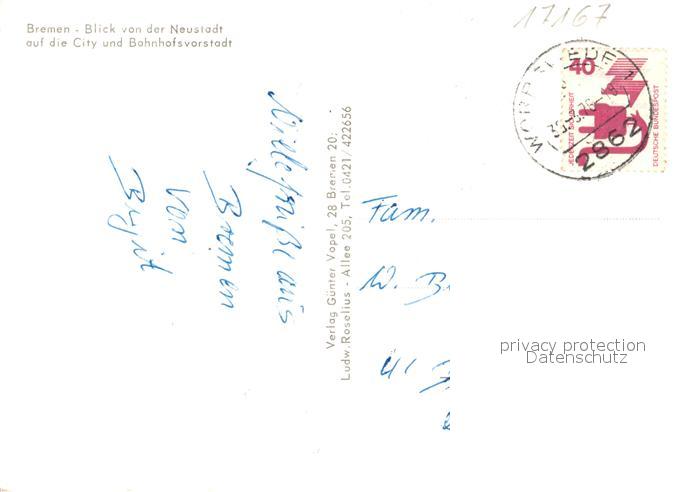 17167
Bremen - Blick von der Neustadt
auf die City und Bahnhofsvorstadt
40
JEDERZEIT SICHERHEIT
DEUTSCHE BUNDESPOST
WORPSWEDE 1
2862
Verlag Günter Vopel, 28 Bremen 20;
Ludw.Roselius - Allee 205, Tel.0421/422656
aus
Bremen
von
Fam.
W. B
41
privacy protection
Datenschutz